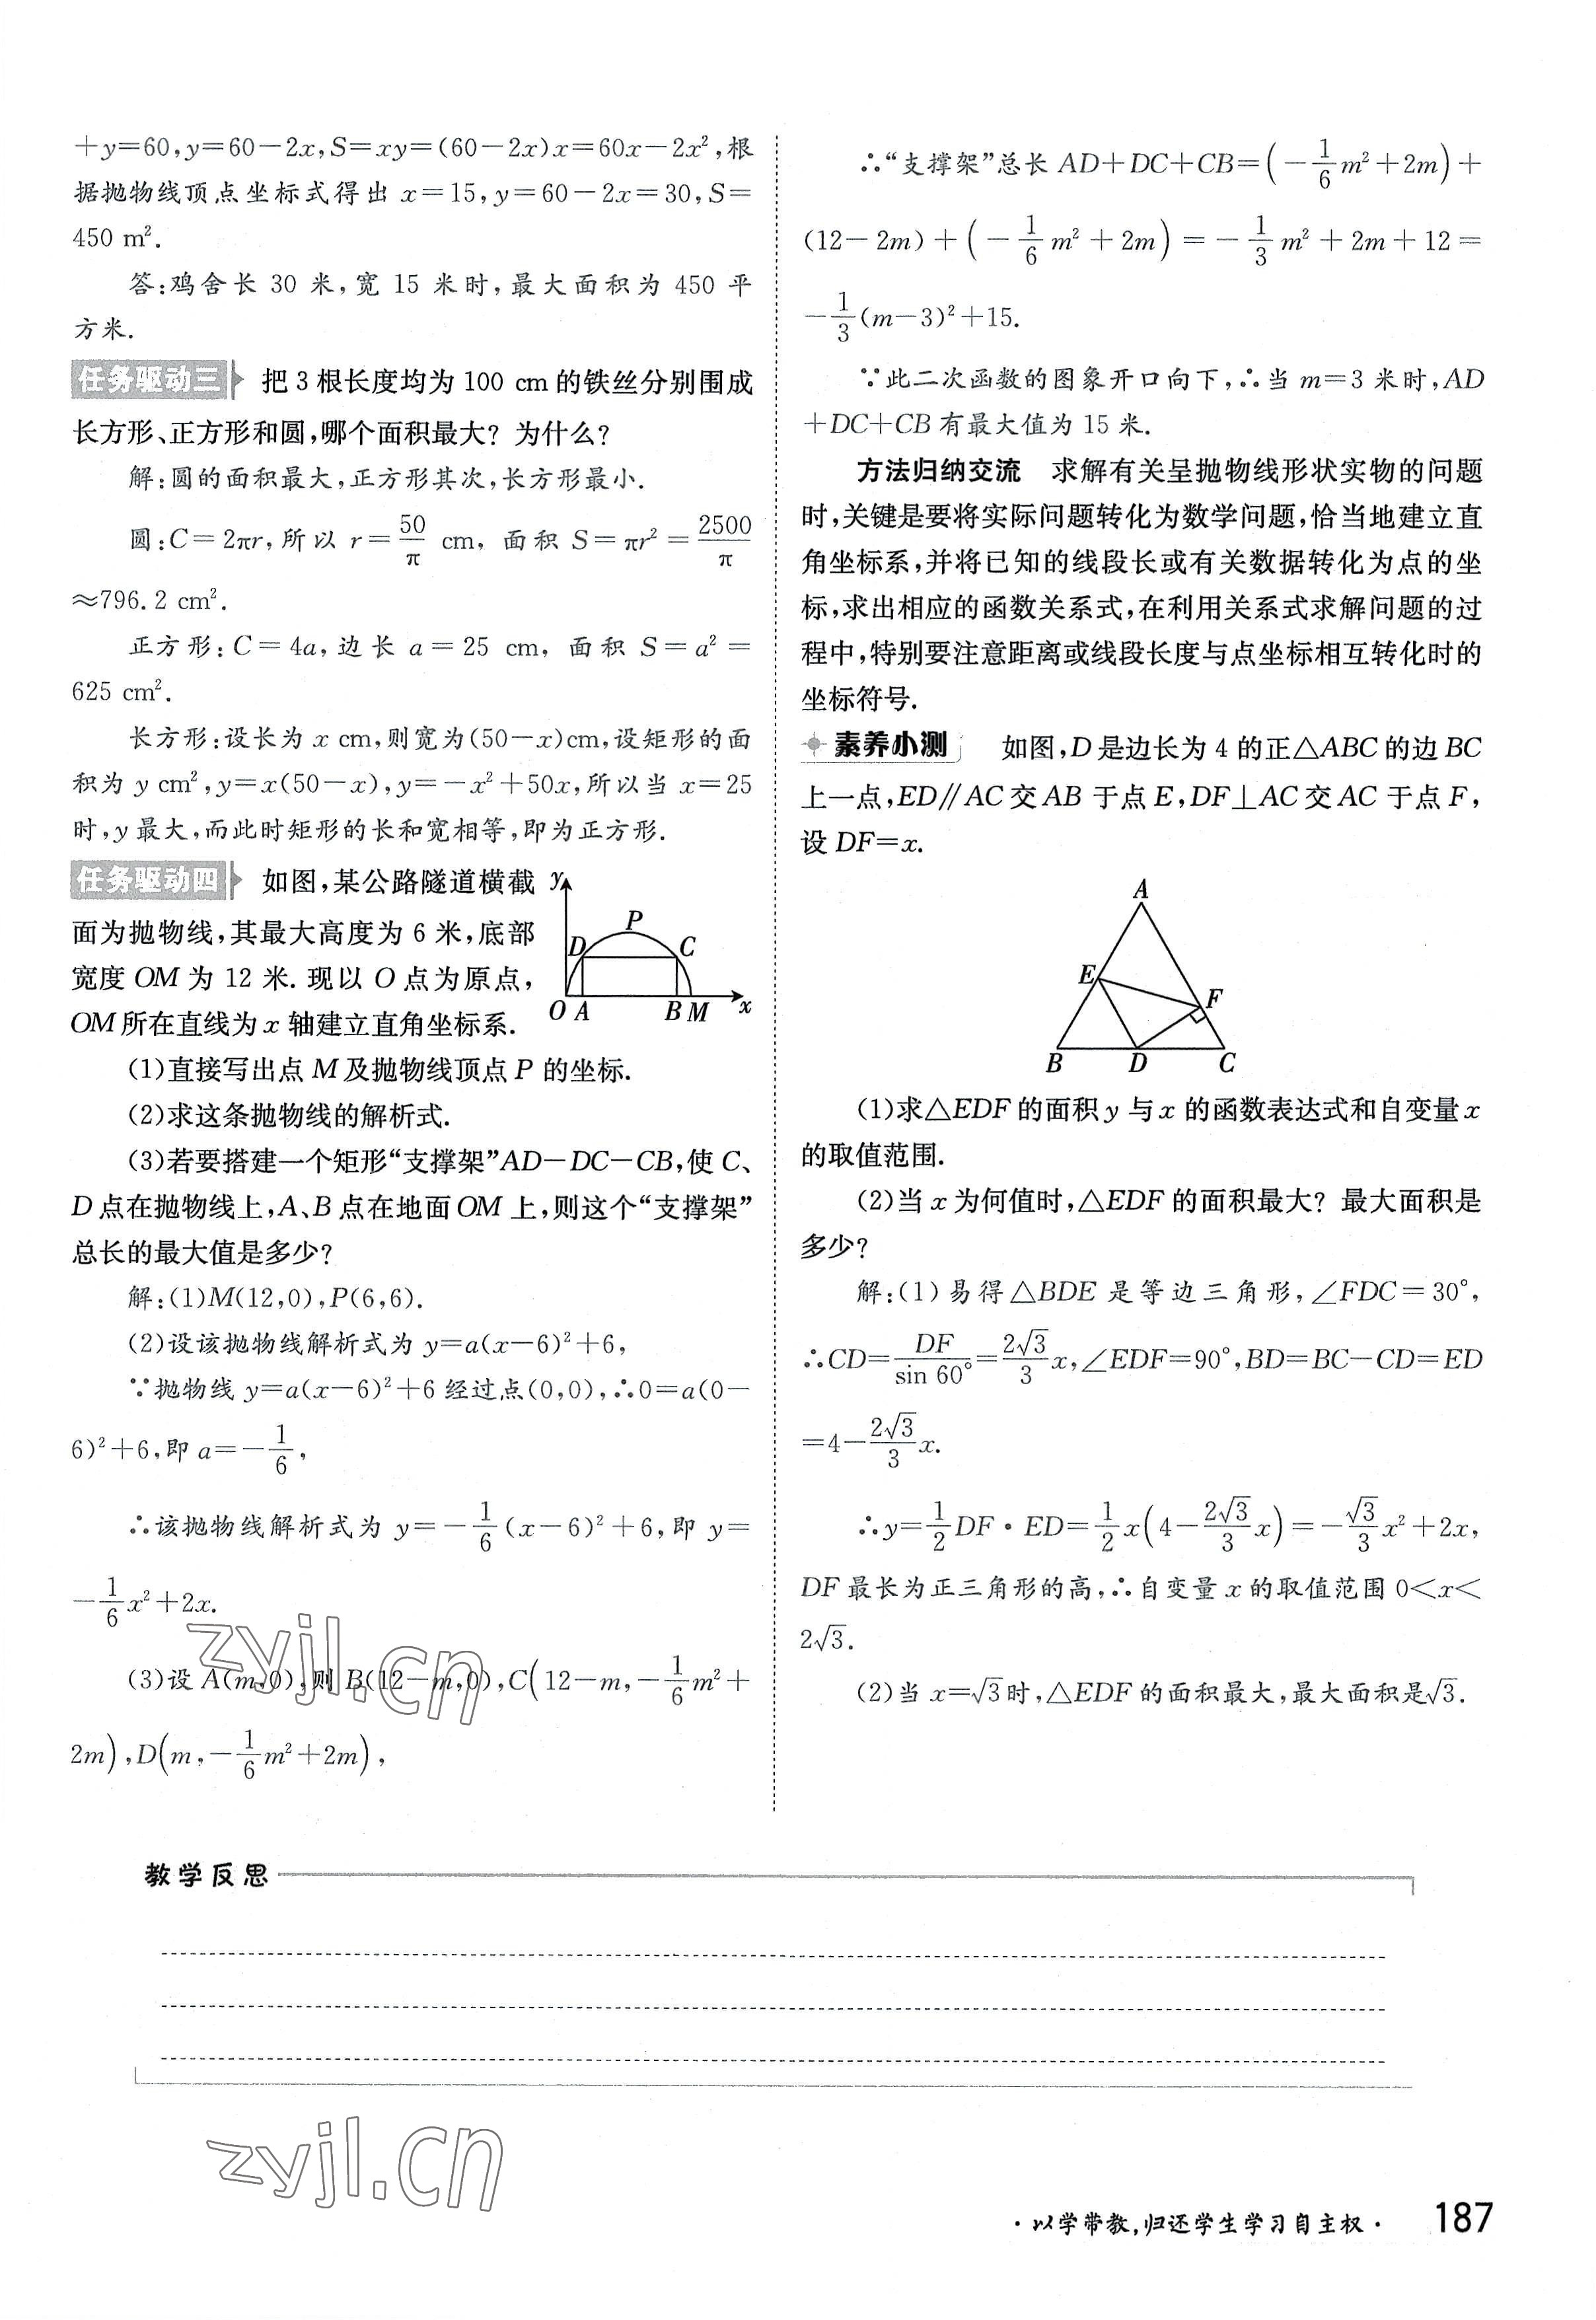 +y=60,y=60-2x,S=xy=(60-2x)x=60x-2x²,根
据抛物线顶点坐标式得出 x=15,y=60-2x=30,S=
450 m².
答:鸡舍长 30 米,宽 15 米时,最大面积为 450 平
方米.
任务驱动三 把 3 根长度均为 100 cm 的铁丝分别围成
长方形、正方形和圆,哪个面积最大? 为什么?
解:圆的面积最大,正方形其次,长方形最小.
圆:C=2πr,所以 r=50/π cm, 面积 S=πr²=2500/π
≈796.2 cm².
正方形:C=4a,边长 a=25 cm, 面积 S=a²=
625 cm².
长方形:设长为 x cm,则宽为(50-x)cm,设矩形的面
积为 y cm²,y=x(50-x),y=-x²+50x,所以当 x=25
时,y 最大,而此时矩形的长和宽相等,即为正方形.
任务驱动四 如图,某公路隧道横截
面为抛物线,其最大高度为 6 米,底部
宽度 OM 为 12 米. 现以 O 点为原点,
OM 所在直线为 x 轴建立直角坐标系.
y
P
D
C
O A B M x
(1)直接写出点 M 及抛物线顶点 P 的坐标.
(2)求这条抛物线的解析式.
(3)若要搭建一个矩形“支撑架”AD-DC-CB,使 C、
D 点在抛物线上,A、B 点在地面 OM 上,则这个“支撑架”
总长的最大值是多少?
解:(1)M(12,0),P(6,6).
(2)设该抛物线解析式为 y=a(x-6)²+6,
∵抛物线 y=a(x-6)²+6 经过点(0,0),∴0=a(0-
6)²+6,即 a=-1/6,
∴该抛物线解析式为 y=-1/6(x-6)²+6,即 y=
-1/6x²+2x.
(3)设 A(m,0),则 B(12-m,0),C(12-m,-1/6m²+
2m),D(m,-1/6m²+2m),
∴“支撑架”总长 AD+DC+CB=(-1/6m²+2m)+
(12-2m)+(-1/6m²+2m)=-1/3m²+2m+12=
-1/3(m-3)²+15.
∵此二次函数的图象开口向下,∴当 m=3 米时,AD
+DC+CB 有最大值为 15 米.
方法归纳交流 求解有关呈抛物线形状实物的问题
时,关键是要将实际问题转化为数学问题,恰当地建立直
角坐标系,并将已知的线段长或有关数据转化为点的坐
标,求出相应的函数关系式,在利用关系式求解问题的过
程中,特别要注意距离或线段长度与点坐标相互转化时的
坐标符号.
素养小测 如图,D 是边长为 4 的正△ABC 的边 BC
上一点,ED∥AC 交 AB 于点 E,DF⊥AC 交 AC 于点 F,
设 DF=x.
A
E
F
B D C
(1)求△EDF 的面积 y 与 x 的函数表达式和自变量 x
的取值范围.
(2)当 x 为何值时,△EDF 的面积最大? 最大面积是
多少?
解:(1)易得△BDE 是等边三角形,∠FDC=30°,
∴CD=DF/sin 60°=2√3/3x,∠EDF=90°,BD=BC-CD=ED
=4-2√3/3x.
∴y=1/2DF·ED=1/2x(4-2√3/3x)=-√3/3x²+2x,
DF 最长为正三角形的高,∴自变量 x 的取值范围 0<x<
2√3.
(2)当 x=√3时,△EDF 的面积最大,最大面积是√3.
zyjl.cn
教学反思
zyjl.cn
·以学带教,归还学生学习自主权· 187